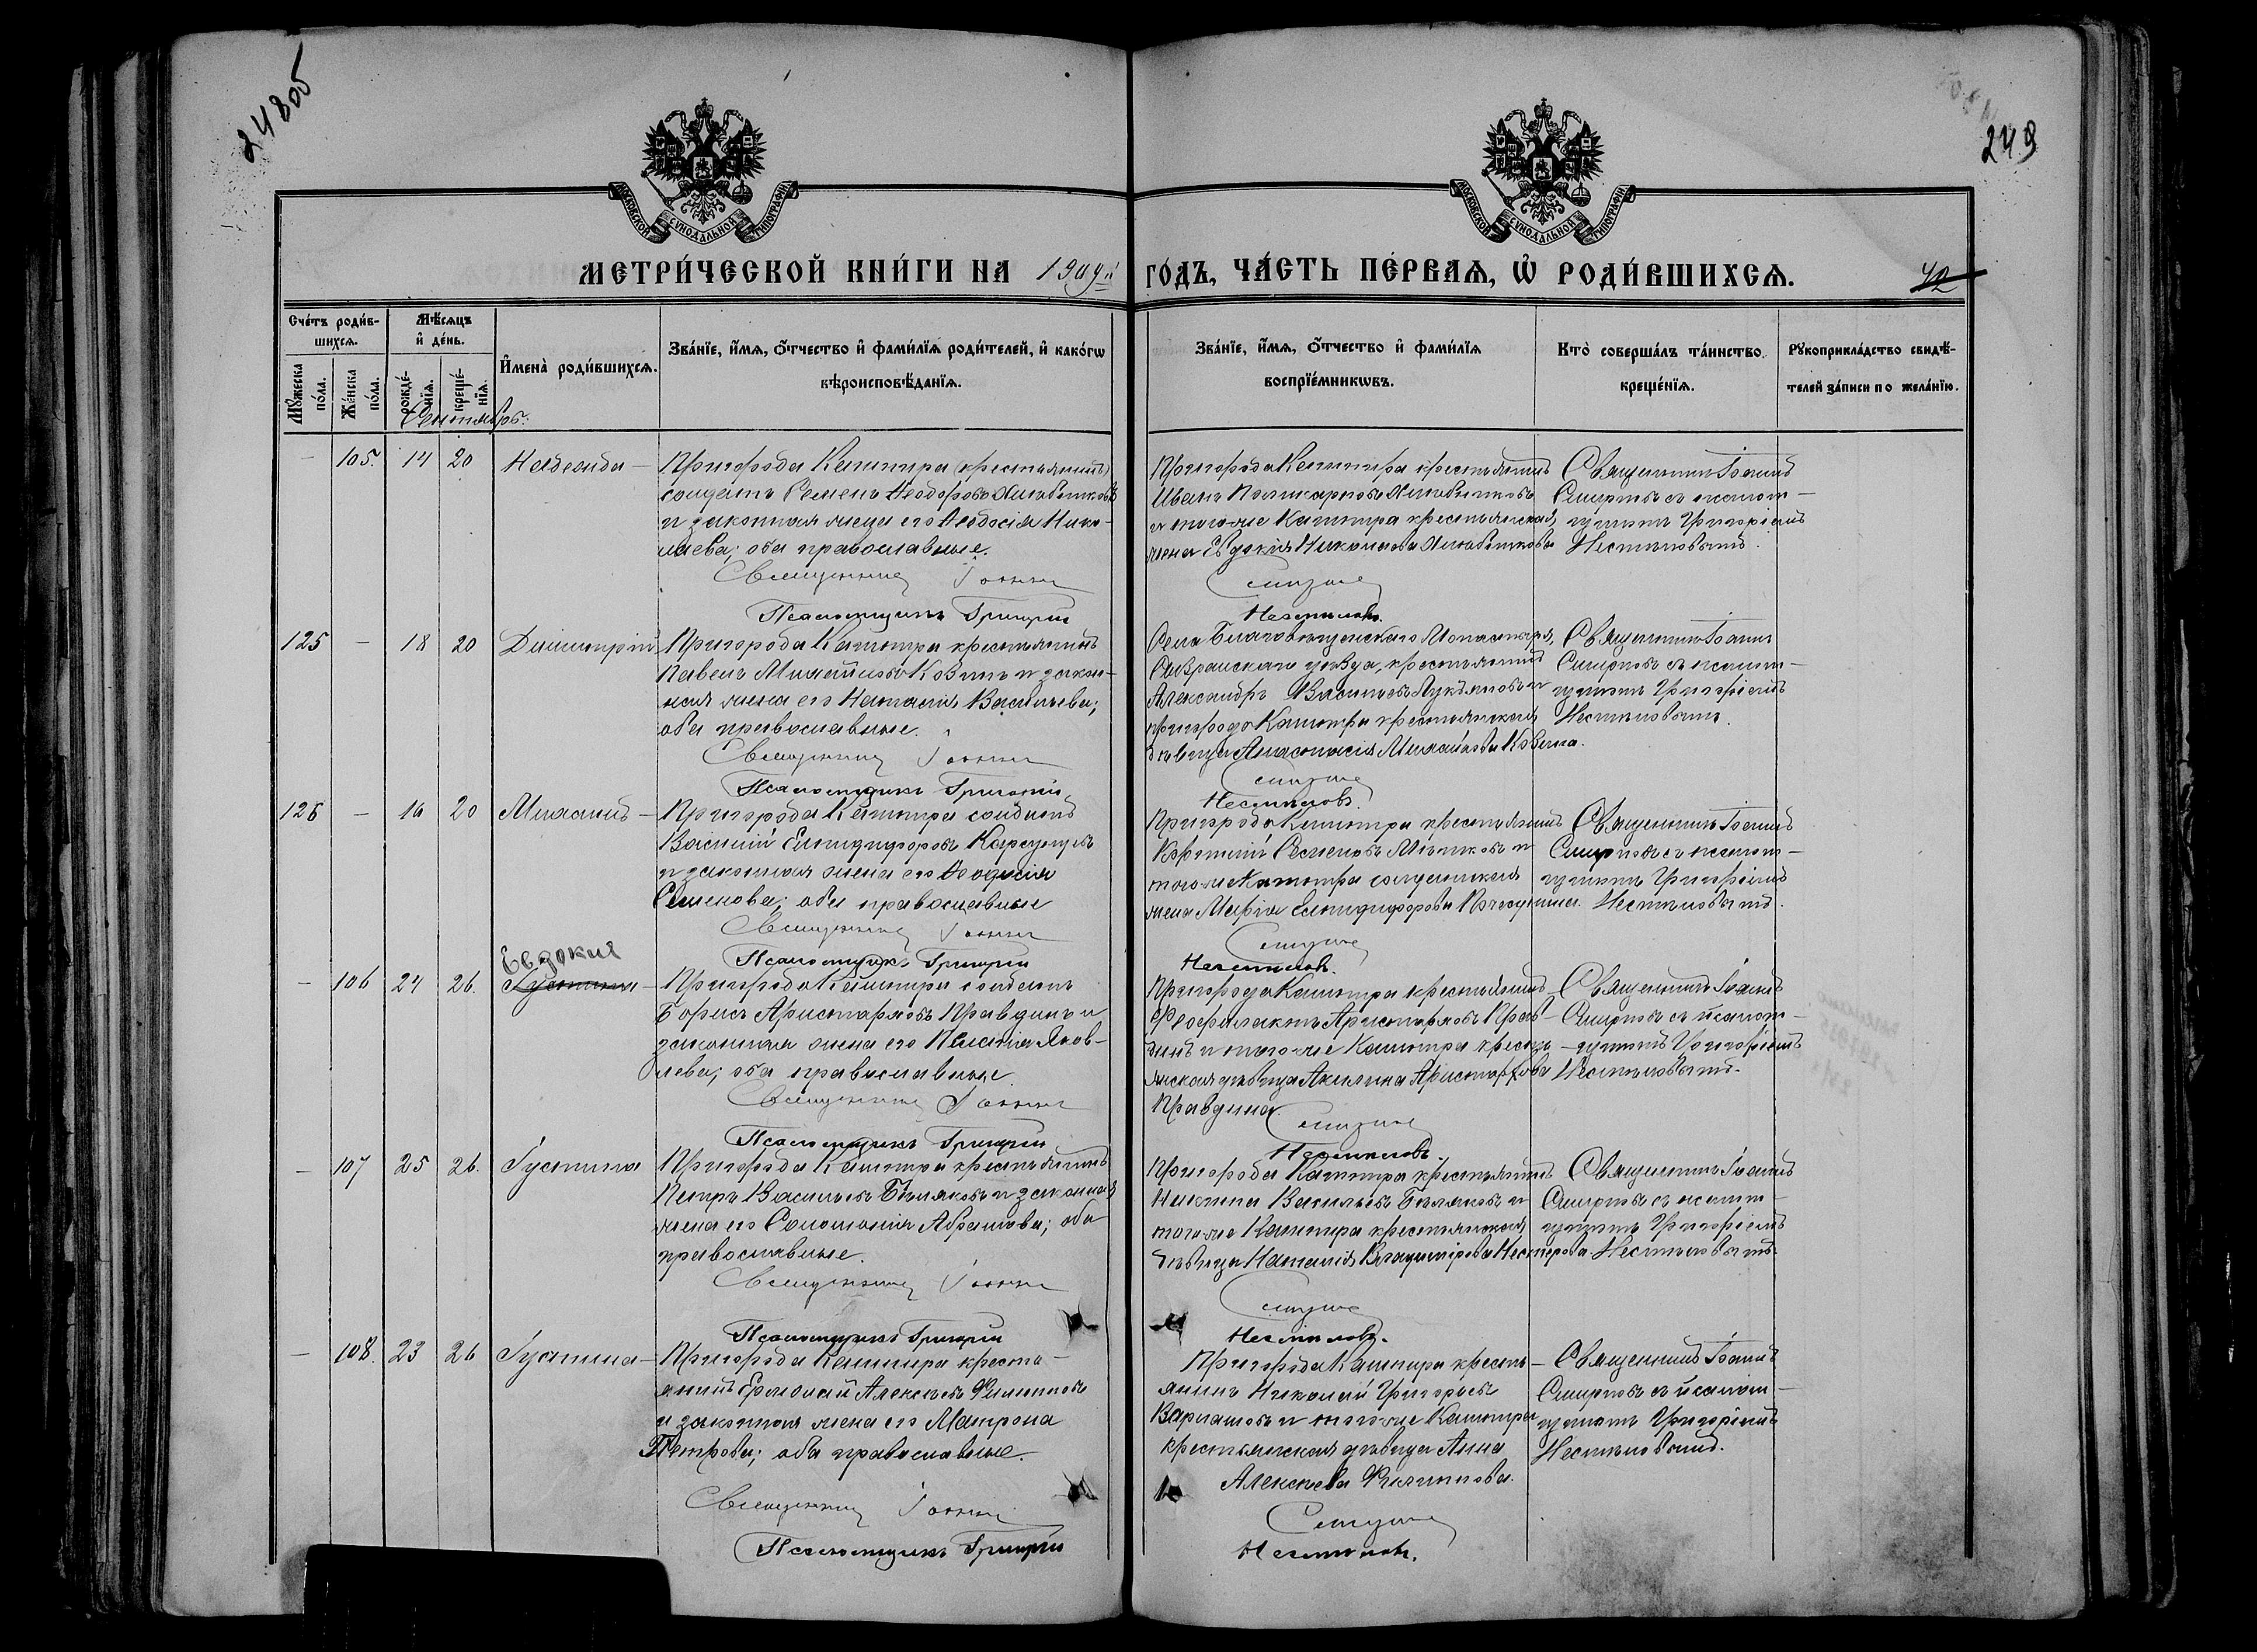 248об
249
МОСКОВСКОЙ СѴНОДАЛЬНОЙ ТИПОГРАФІИ
МОСКОВСКОЙ СѴНОДАЛЬНОЙ ТИПОГРАФІИ
МЕТРИ́ЧЕСКОЙ КНИ́ГИ НА 1909й ГО́ДЪ, ЧА́СТЬ ПЕ́РВАѦ, Ѡ҆ РОДИ́ВШИХСѦ.
42
Сче́тъ роди́в-
шихсѧ.
Мѣ́сѧцъ
и҆ де́нь.
Мꙋ́жеска по́ла.
Же́нска по́ла.
рожде́-
нїѧ.
креще́-
нїѧ.
И҆мена̀ роди́вшихсѧ.
Зва́нїе, и҆́мѧ, ѻ҆́тчество и҆ фами́лїѧ роди́телей, и҆ како́гѡ
вѣроисповѣ́данїѧ.
Зва́нїе, и҆́мѧ, ѻ҆́тчество и҆ фами́лїѧ
воспрїе́мникѡвъ.
Кто̀ соверша́лъ та́инство
креще́нїѧ.
Рꙋкоприкла́дство свидѣ́-
телей за́писи по жела́нїю.
Сентябрь.
— 105. 14 20 Надежда —
Пригорода Кашпира (крестьянинъ)
солдатъ Семенъ Ѳеодоровъ
и законная жена его Ѳеодосія Нико-
лаева; оба православные.
Священникъ Іоаннъ
Псаломщикъ Григорій
Пригорода Кашпира крестьянинъ
Иванъ Поликарповъ
и того-же Кашпира крестьянская
жена Евдокія Николаева
Смирновъ
Нестеловъ.
Священникъ Іоаннъ
Смирновъ съ псалом-
щикомъ Григоріемъ
Нестеловымъ.
125 — 18 20 Димитрій
Пригорода Кашпира крестьянинъ
Павелъ Михайловъ Ковинъ и закон-
ная жена его Наталія Васильева;
оба православные.
Священникъ Іоаннъ
Псаломщикъ Григорій
Села Благовѣщенскаго Монастыря,
Сызранскаго уѣзда, крестьянинъ
Александръ Васильевъ Лукьяновъ и
пригорода Кашпира крестьянская
дѣвица Анастасія Михайлова Ковина.
Смирновъ
Нестеловъ.
Священникъ Іоаннъ
Смирновъ съ псалом-
щикомъ Григоріемъ
Нестеловымъ.
126 — 16 20 Михаилъ —
Пригорода Кашпира солдатъ
Василій Елпидифоровъ
и законная жена его Ѳеодосія
Семенова; оба православные
Священникъ Іоаннъ
Псаломщикъ Григорій
Пригорода Кашпира крестьянинъ
Семеновъ и
того-же Кашпира солдатская
жена Марія Елпидифорова
Смирновъ
Нестеловъ.
Священникъ Іоаннъ
Смирновъ съ псалом-
щикомъ Григоріемъ
Нестеловымъ.
Евдокия
— 106 24 26. Іустина —
Пригорода Кашпира солдатъ
Борисъ Аристарховъ Правдинъ и
законная жена его Пелагія Яков-
лева; оба православные.
Священникъ Іоаннъ
Псаломщикъ Григорій
Пригорода Кашпира крестьянинъ
Ѳеофилактъ Аристарховъ Прав-
динъ и того-же Кашпира кресть-
янская дѣвица Акилина Аристархова
Правдина
Смирновъ
Нестеловъ.
Священникъ Іоаннъ
Смирновъ съ псалом-
щикомъ Григоріемъ
Нестеловымъ.
— 107 25 26. Іустина
Пригорода Кашпира крестьянинъ
Петръ Васильевъ Бѣляковъ и законная
жена его Соломонія Абрамова; оба
православные.
Священникъ Іоаннъ
Псаломщикъ Григорій
Пригорода Кашпира крестьянинъ
Никита Васильевъ Бѣляковъ и
того-же Кашпира крестьянская
дѣвица Наталія Владимірова Нестерова
Смирновъ
Нестеловъ.
Священникъ Іоаннъ
Смирновъ съ псалом-
щикомъ Григоріемъ
Нестеловымъ.
— 108. 23 26 Іустина —
Пригорода Кашпира кресть-
янинъ Ермолай Алексѣевъ Филипповъ
и законная жена его Матрона
Петрова; оба православные.
Священникъ Іоаннъ
Псаломщикъ Григорій
Пригорода Кашпира кресть-
янинъ Николай Григорьевъ
Варламовъ и того-же Кашпира
крестьянская дѣвица Анна
Алексѣева Филиппова.
Смирновъ
Нестеловъ.
Священникъ Іоаннъ
Смирновъ съ псалом-
щикомъ Григоріемъ
Нестеловымъ.